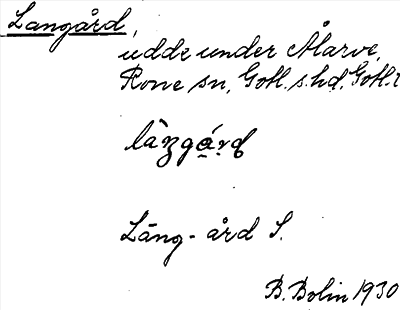 Langård,
udde under Ålarve,
Rone sn, Gotl. s. hd, Gotl.
Läng-ård S.
B. Bolin 1930